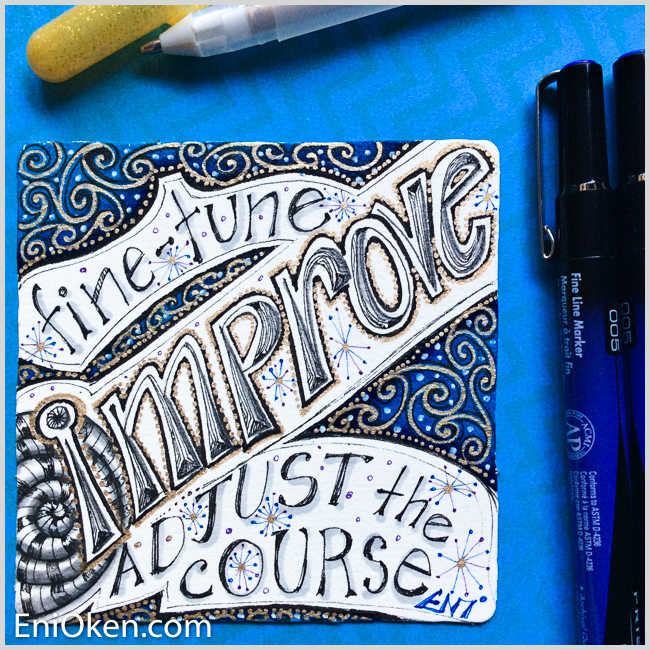 fine-tune
improve
ADJUST the
COURSE
ENI
EniOken.com
Fine Line Marker
Marqueur à trait fin
005
005
ACMI
AP
Conforms to ASTM D-4236
Conforme à la norme ASTM D-4236